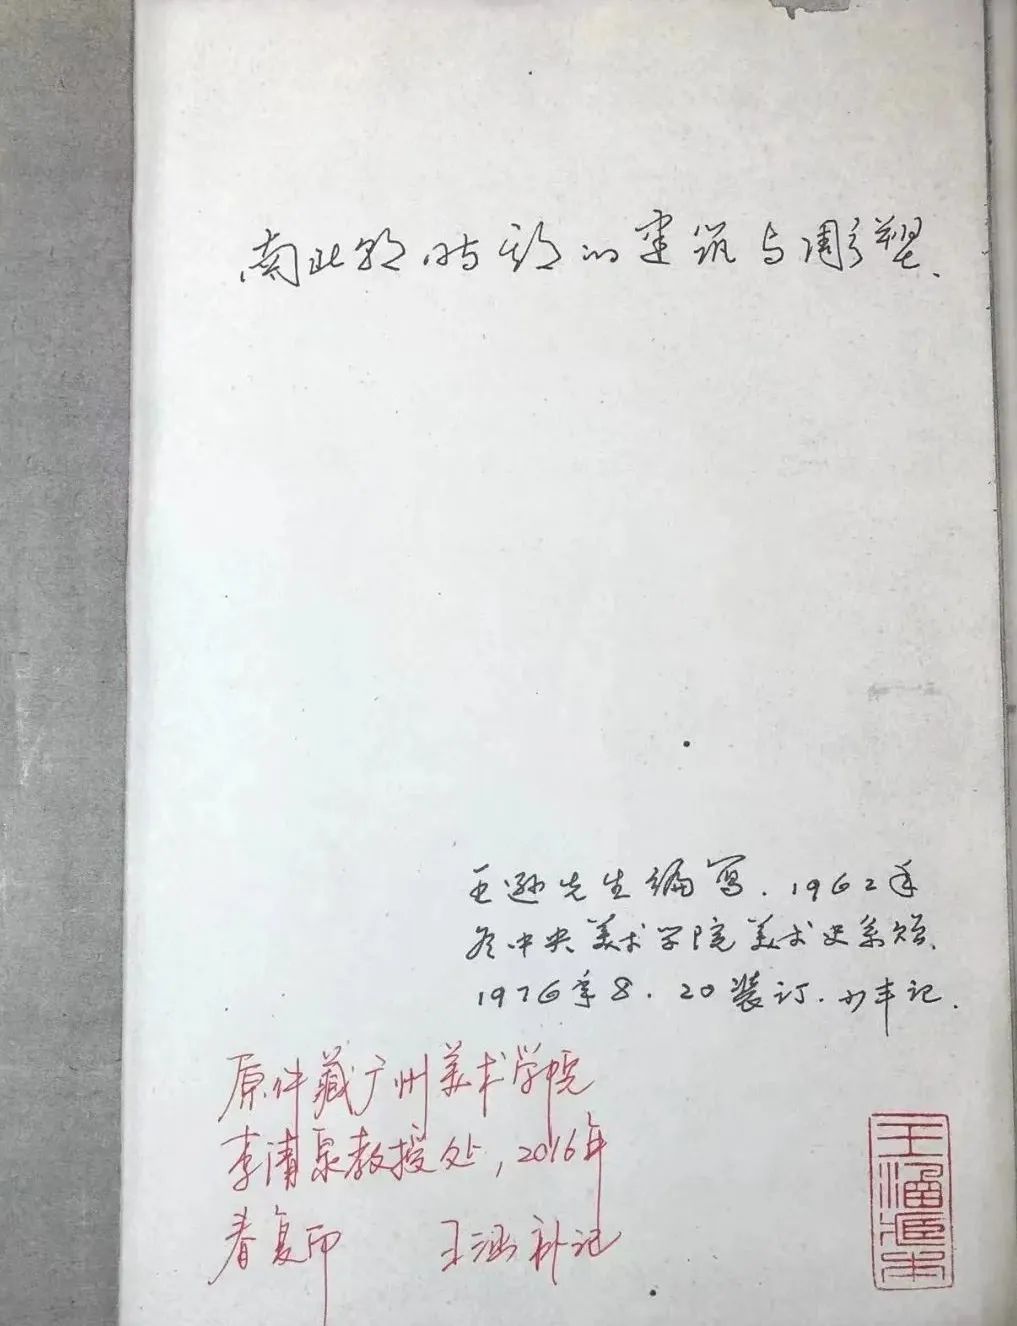 南北朝时期的建筑与雕塑.
王逊先生编写. 1962年
冬中央美术学院美术史系赠.
1976年8.20装订.少丰记.
原件藏广州美术学院
李清泉教授处,2016年
春复印 王涵补记
王涵藏书